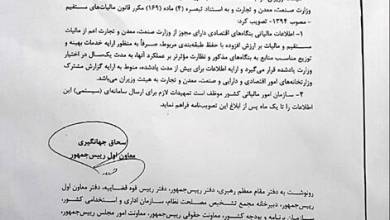 وزارت صنعت، معدن و تجارت و به استناد تبصره (۴) ماده (۱۶۹) مکرر قانون مالیات‌های مستقیم
- مصوب ۱۳۹۴- تصویب کرد:
۱- اطلاعات مالیاتی بنگاه‌های اقتصادی دارای مجوز از وزارت صنعت، معدن و تجارت اعم از مالیات
مستقیم و مالیات بر ارزش افزوده با حفظ طبقه‌بندی مربوط، صرفاً به منظور ارایه خدمات بهینه و
توزیع مناسب منابع به بنگاه‌های مذکور و نظارت مؤثرتر بر عملکرد آنها، به مدت یک‌سال در اختیار
وزارت یادشده قرار می‌گیرد و ارایه اطلاعات برای بیش از مدت یادشده، منوط به ارایه گزارش مشترک
وزارتخانه‌های امور اقتصادی و دارایی و صنعت، معدن و تجارت به هیئت وزیران می‌باشد.
۲- سازمان امور مالیاتی کشور موظف است تمهیدات لازم برای ارسال سامانه‌ای (سیستمی) این
اطلاعات را تا یک ماه پس از ابلاغ این تصویب‌نامه فراهم نماید.
اسحاق جهانگیری
معاون اول رییس‌جمهور
رونوشت به دفتر مقام معظم رهبری، دفتر رییس‌جمهور، دفتر رییس قوه قضاییه، دفتر معاون اول
رییس‌جمهور، دبیرخانه مجمع تشخیص مصلحت نظام، سازمان اداری و استخدامی کشور،
سازمان برنامه و بودجه کشور، معاونت حقوقی رییس‌جمهور، معاونت امور مجلس رییس‌جمهور،